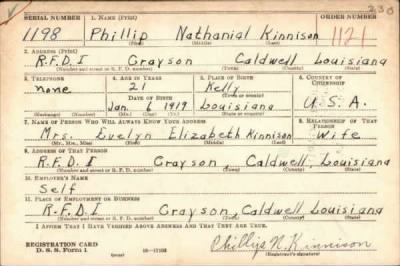 230
SERIAL NUMBER 1. NAME (Print) ORDER NUMBER
1198 Phillip Nathanial Kinnison 1121
(First) (Middle) (Last)
2. ADDRESS (Print)
R.F.D. I Grayson Caldwell Louisiana
(Number and street or R. F. D. number) (Town) (County) (State)
3. TELEPHONE 4. AGE IN YEARS 5. PLACE OF BIRTH 6. COUNTRY OF CITIZENSHIP
none 21 Kelly
DATE OF BIRTH (Town or county)
Jan. 6 1919 Louisiana U.S.A.
(Exchange) (Number) (Mo.) (Day) (Yr.) (State or country)
7. NAME OF PERSON WHO WILL ALWAYS KNOW YOUR ADDRESS 8. RELATIONSHIP OF THAT PERSON
Mrs. Evelyn Elizabeth Kinnison Wife
(Mr., Mrs., Miss) (First) (Middle) (Last)
9. ADDRESS OF THAT PERSON
R.F.D. I Grayson, Caldwell, Louisiana
(Number and street or R. F. D. number) (Town) (County) (State)
10. EMPLOYER'S NAME
Self
11. PLACE OF EMPLOYMENT OR BUSINESS
R.F.D. I Grayson, Caldwell, Louisiana
(Number and street or R. F. D. number) (Town) (County) (State)
I AFFIRM THAT I HAVE VERIFIED ABOVE ANSWERS AND THAT THEY ARE TRUE.
REGISTRATION CARD
D. S. S. Form 1 Phillip N. Kinnison
(over) (Registrant's signature)